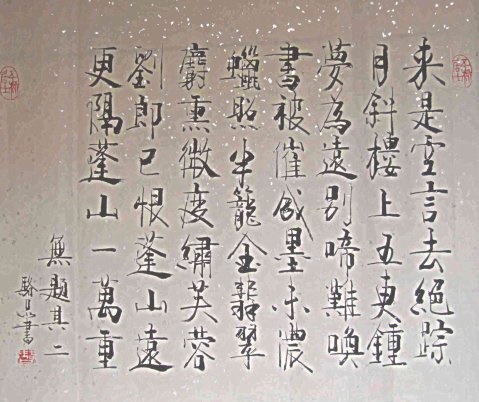 来是空言去絕踪
月斜樓上五更鍾
夢為遠別啼難喚
書被催成墨未濃
蠟照半籠金翡翠
麝熏微度繡芙蓉
劉郎已恨蓬山遠
更隔蓬山一萬重
無題其二
書